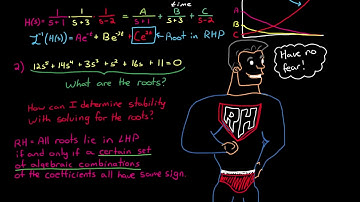 time
H(s) = 1/(s+1) · 1/(s+3) · 1/(s-2) = A/(s+1) + B/(s+3) + C/(s-2)
A
B
C
ℒ⁻¹(H(s)) = Ae⁻ᵗ + Be⁻³ᵗ + Ce²ᵗ ← Root in RHP
2) 12s⁵ + 14s⁴ + 3s³ + s² + 16s + 11 = 0
What are the roots?
Have no
fear!
How can I determine stability
with solving for the roots?
RH
RH = All roots lie in LHP
if and only if a certain set
of algebraic combinations
of the coefficients all have same sign.